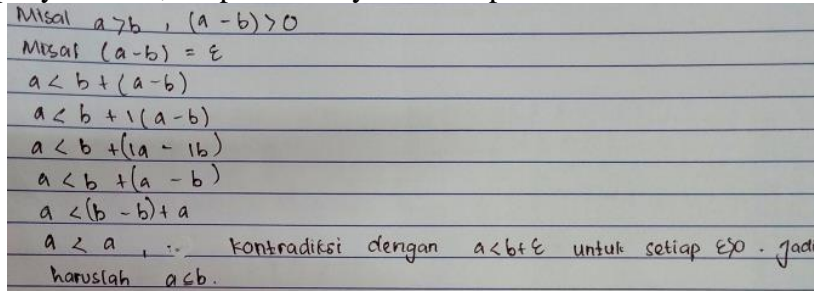 Misal a>b , (a - b) > 0
Misal (a-b) = ε
a < b + (a-b)
a < b + 1(a-b)
a < b + (1a - 1b)
a < b + (a - b)
a < (b - b) + a
a < a , ∴ kontradiksi dengan a<b+ε untuk setiap ε>0 . Jadi
haruslah a≤b.